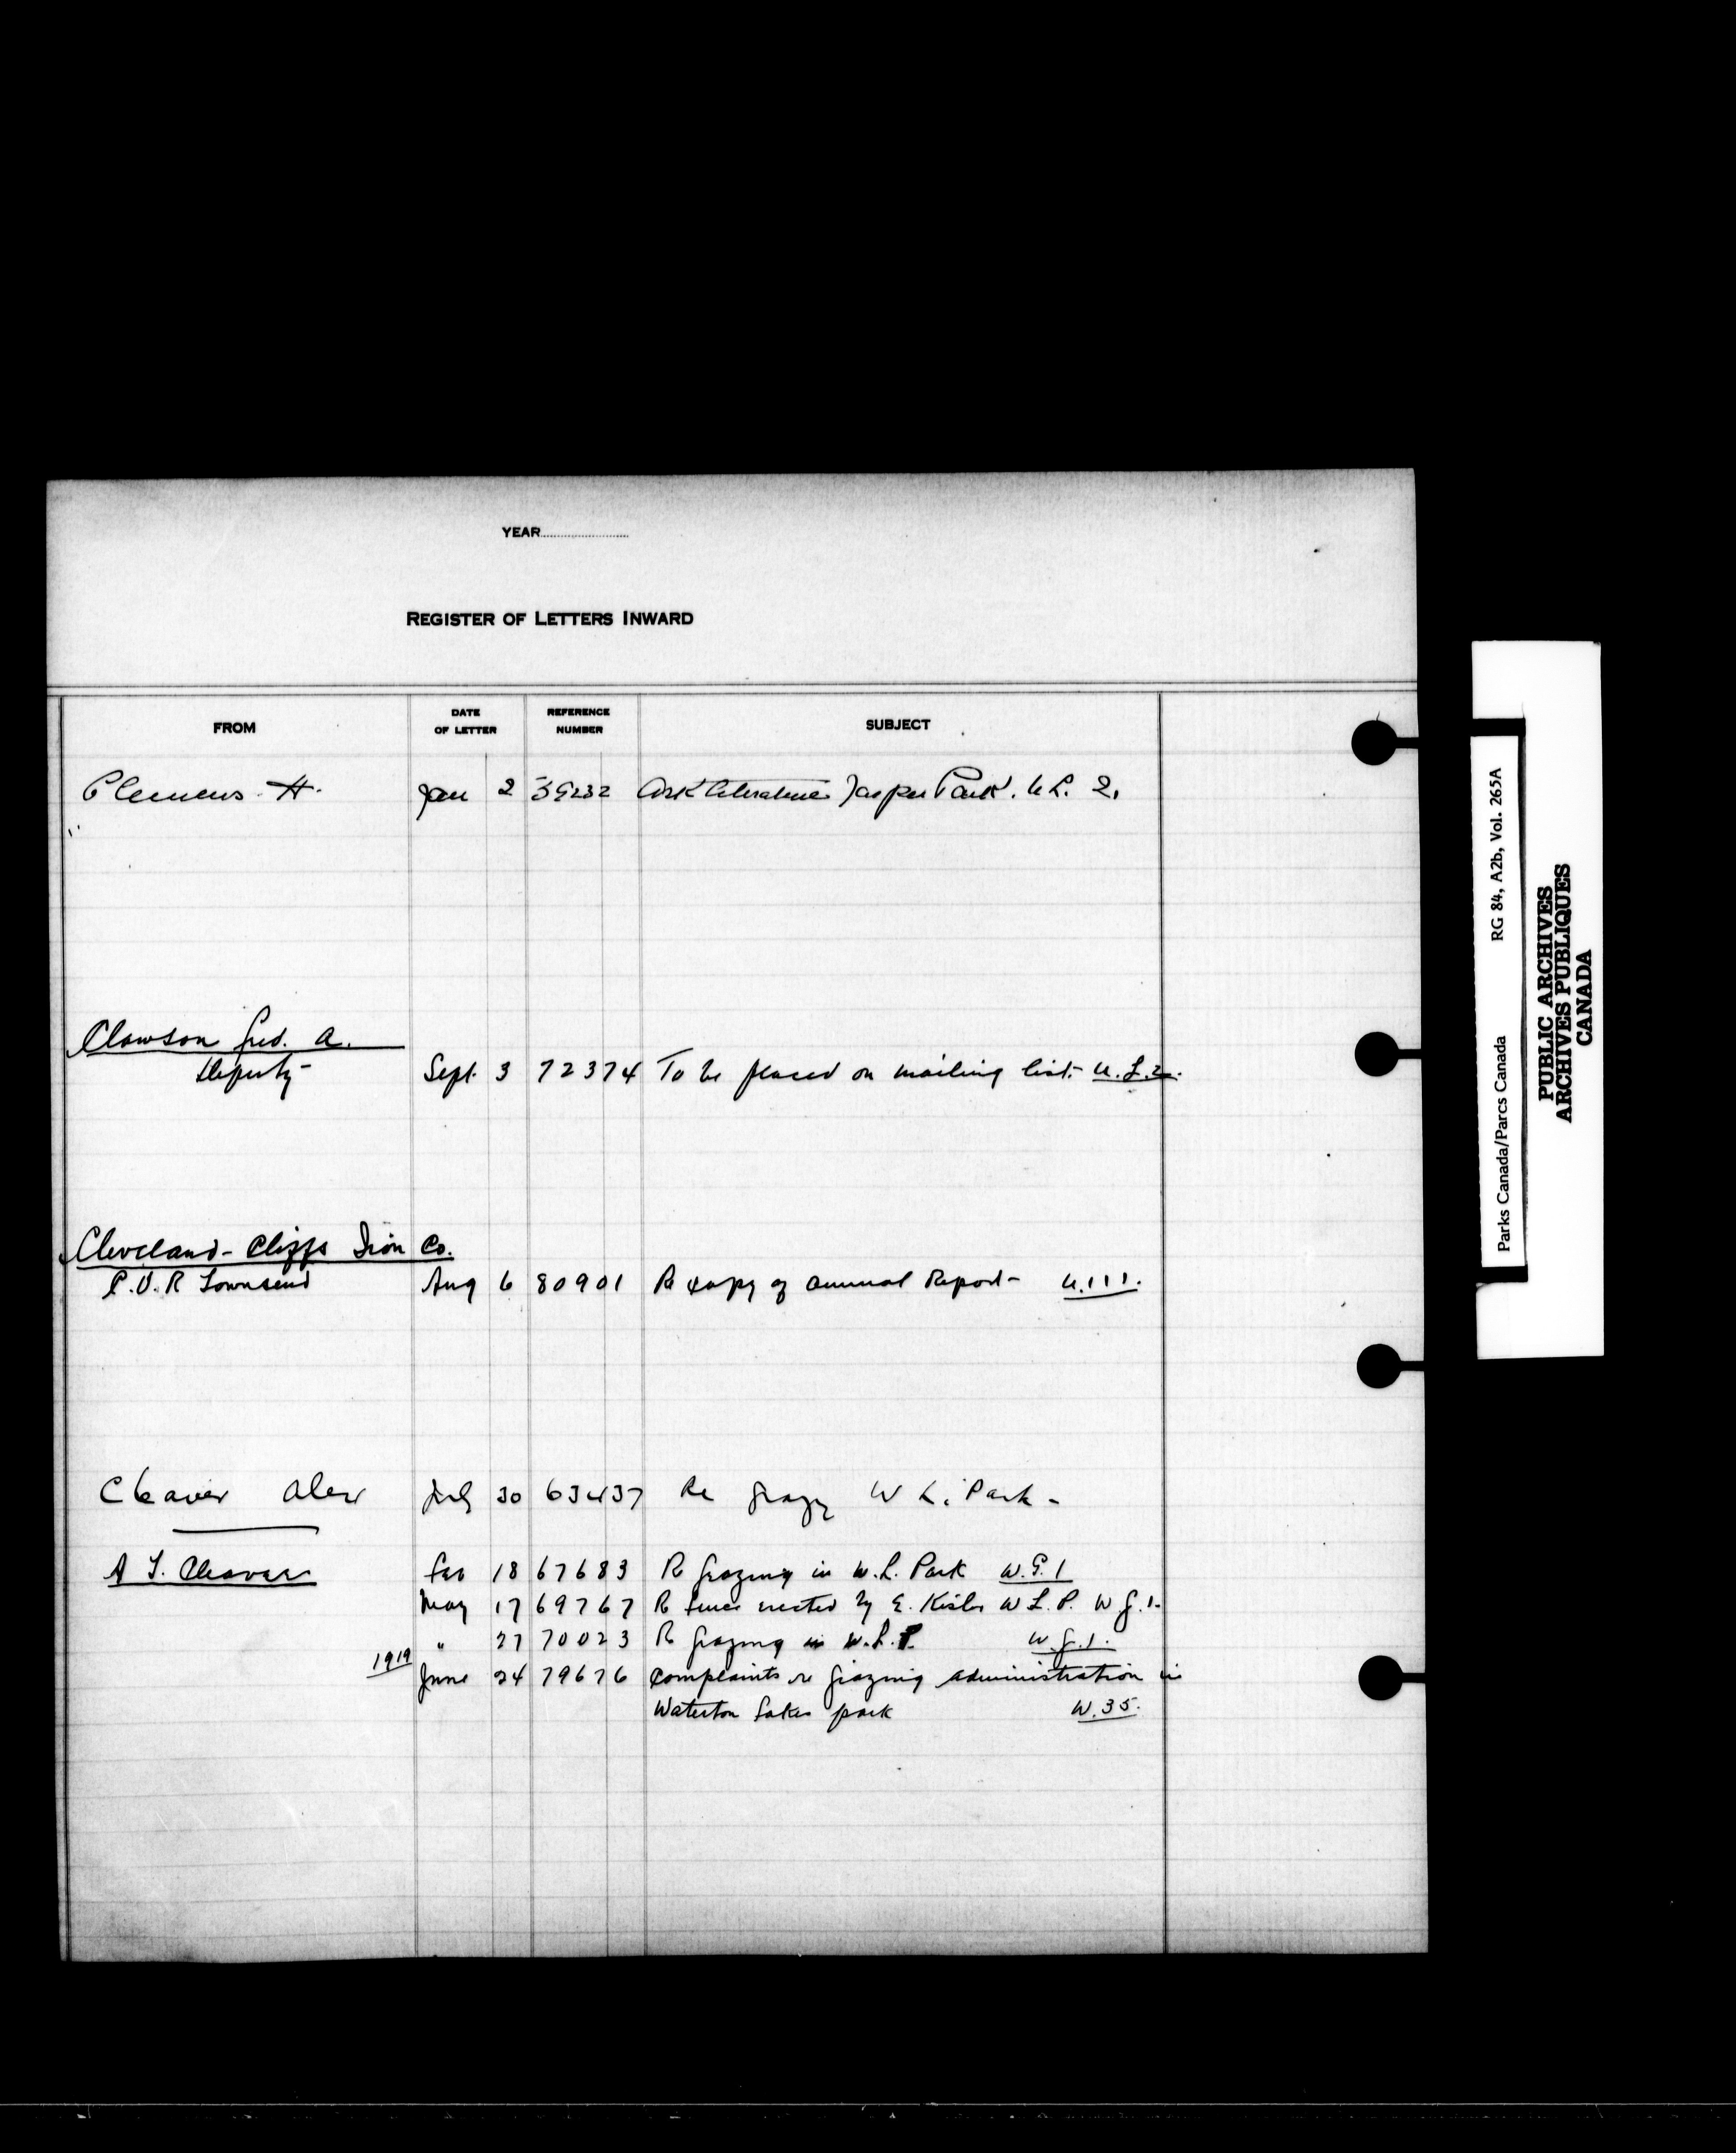 YEAR
REGISTER OF LETTERS INWARD
FROM DATE OF LETTER REFERENCE NUMBER SUBJECT
Clemens H. Jan 2 39232 Ask literature Jasper Park. U.L. 2.
Clawson Fred. A.
Deputy Sept. 3 72374 To be placed on mailing list. U.L.2.
Cleveland-Cliffs Iron Co.
Townsend Aug 6 80901 Re copy of annual Report - U.111.
Cleaver Alex July 30 63437 Re W L. Park -
A. Cleaver 18 67683 R grazing in W.L. Park W.G.1
May 17 69767 R fence erected by E. W L. P. W G.1.
" 27 70023 R grazing in W.L.P. W.G.1.
1919 June 24 79676 Complaints re grazing administration in
Waterton Lakes park W.35.
Parks Canada/Parcs Canada RG 84, A2b, Vol. 265A
PUBLIC ARCHIVES
ARCHIVES PUBLIQUES
CANADA